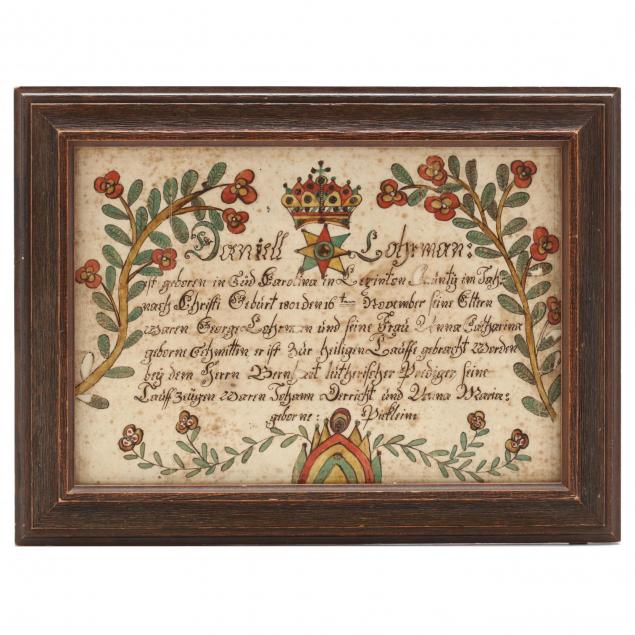 Daniell Lohrman:
ist geboren in Süd Carolina in Lexinton Cüntÿ im Jah
nach Christi Gebürt 1801 den 16ten November seine Eltern
Waren George Lohrman und seine Frau Anna Catharina
geborne Schmittin er ist Zur heiligen Tauffe gebracht Worden
beÿ dem Herrn Bernhart lutherischer Prediger seine
Tauff Zeügen Waren Johann Derricht und Anna Maria:
geborne: Picklein: